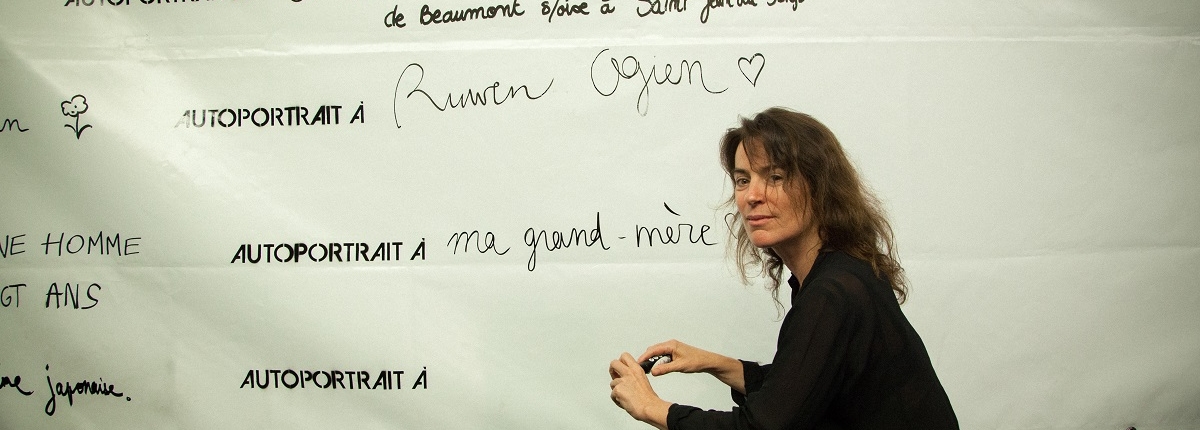 AUTOPORTRAIT
de Beaumont s/oise à Saint
AUTOPORTRAIT À Ruwen Ogien
HOMME
AUTOPORTRAIT À ma grand-mère
ANS
japonaise.
AUTOPORTRAIT À